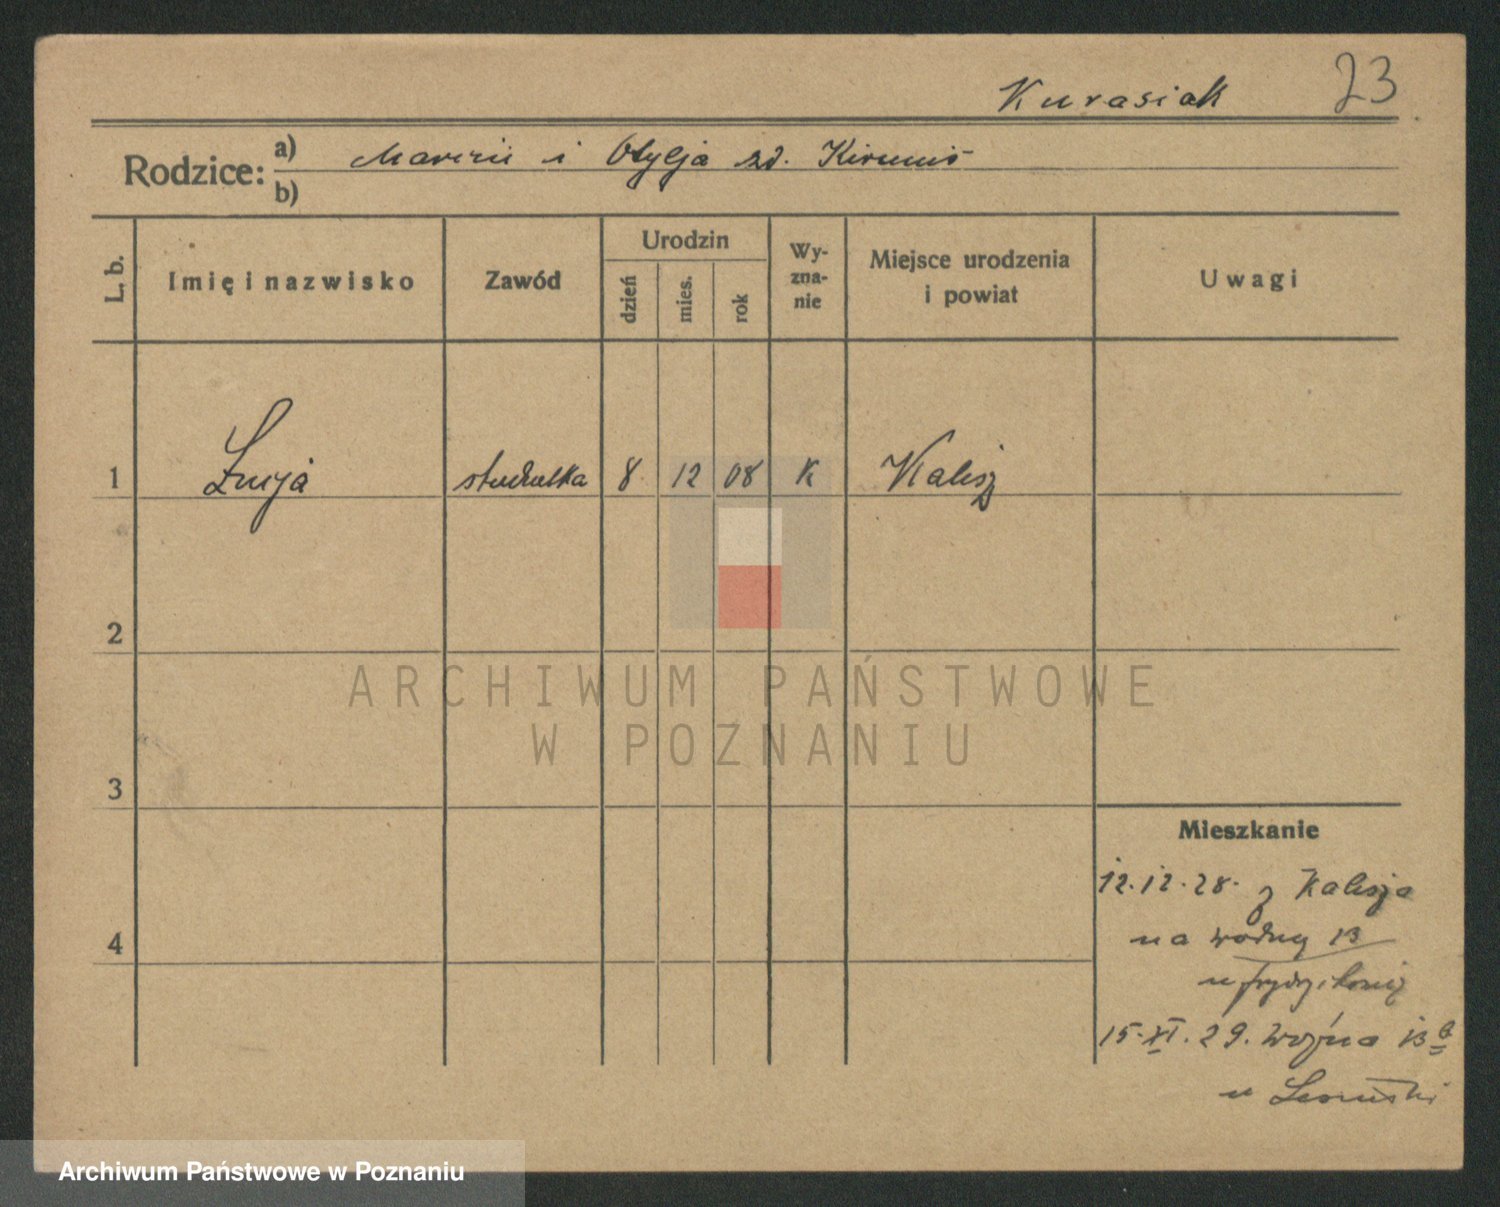 Kurasiak 23
Rodzice: a) i Otylja zd.
b)
L. b. Imię i nazwisko Zawód Urodzin dzień mies. rok Wy-zna-nie Miejsce urodzenia i powiat Uwagi
1 studentka 8 12 08 K Kalisz
2
3
4
ARCHIWUM PAŃSTWOWE
W POZNANIU
Mieszkanie
12.12.28. z Kalisza
na wodną 13
u
15.XI.29. 13
u
Archiwum Państwowe w Poznaniu